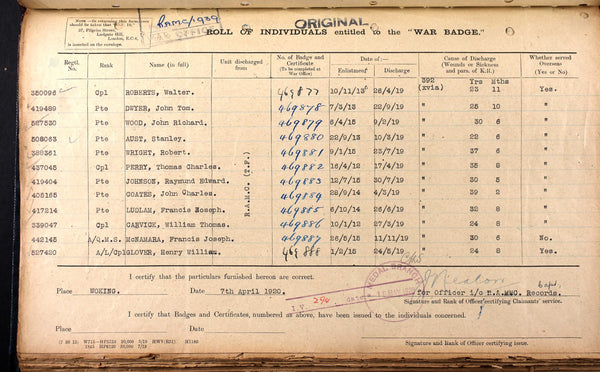 NOTE.—In returning this form care
should be taken that
37, Pilgrim Street,
Ludgate Hill,
London, E.C.4
is inserted on the envelope.
RAMC/1939
ORIGINAL
ROLL OF INDIVIDUALS entitled to the "WAR BADGE."
Regtl. No. Rank Name (in full) Unit discharged from No. of Badge and Certificate (To be completed at War Office) Date of:— Enlistment Discharge Cause of Discharge (Wounds or Sickness and para. of K.R.) Whether served Overseas (Yes or No)
392 Yrs Mths
350096 Cpl ROBERTS, Walter. 469877 10/11/13 26/4/19 (xvia) 23 11 Yes.
419489 Pte DWYER, John Tom. 469878 7/3/13 22/5/19 " 25 10 "
Pte WOOD, John Richard. 469879 6/4/15 9/2/19 " 30 6 "
508063 Pte AUST, Stanley. 469880 22/9/13 10/3/19 " 22 6 "
Pte WRIGHT, Robert. 469881 9/1/15 23/7/19 " 37 6 "
437045 Cpl PERRY, Thomas Charles. 469882 16/4/12 17/4/19 " 35 8 "
419404 Pte JOHNSON, Raymund Edward. 469883 12/7/15 30/5/19 " 24 3 "
405165 Pte COATES, John Charles. 469884 28/9/14 4/3/19 " 39 2 "
417214 Pte LUDLAM, Francis Joseph. 469885 6/10/14 26/3/19 " 32 6 "
339047 Cpl CARVICK, William Thomas 469886 1/6/10 27/3/19 " 38 8 "
442145 A/Q.M.S. McNAMARA, Francis Joseph. 469887 26/5/15 11/11/19 " 30 6 No.
527420 A/L/Cpl GLOVER, Henry William. 469888 1/2/15 24/5/19 " 26 5 Yes.
R.A.M.C. (T.F.)
I certify that the particulars furnished hereon are correct.
Place WOKING. Date 7th April 1920.
MEDAL BRANCH
for Officer i/c R.A.MC. Records.
Signature and Rank of Officer certifying Claimants' service.
I certify that Badges and Certificates, numbered as above, have been issued to the individuals concerned.
Place Date
Signature and Rank of Officer certifying issue.